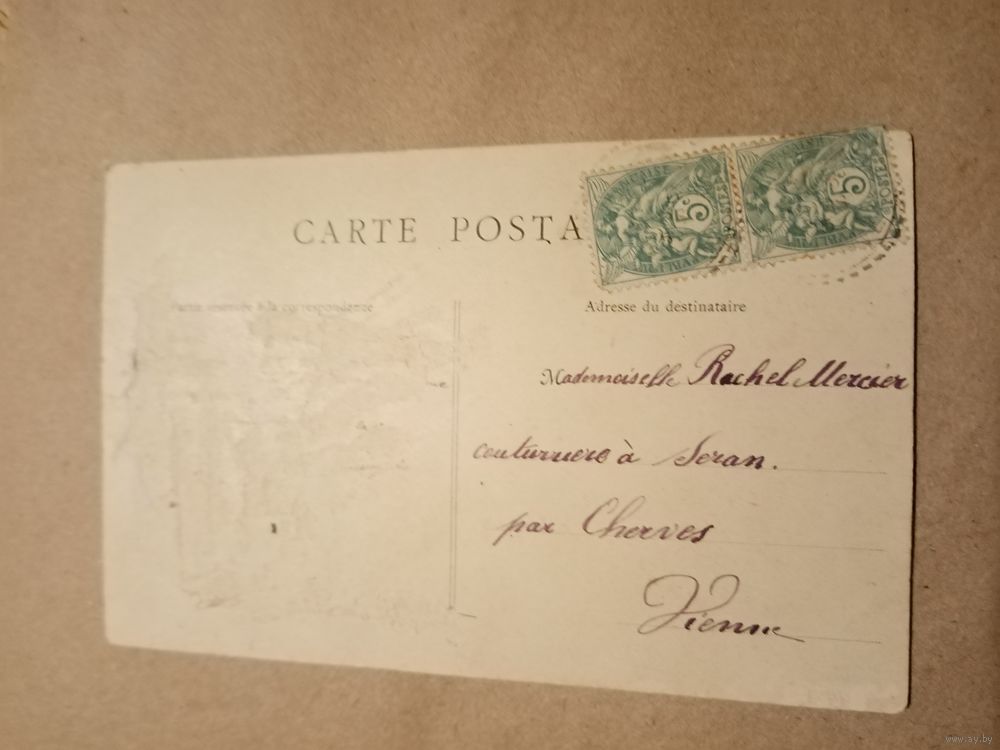 CARTE POSTA
5
POSTES
5
POSTES
Partie réservée à la correspondance
Adresse du destinataire
Mademoiselle Rachel Mercier
couturriere à Seran.
par Cherves
Vienne
www.ay.by